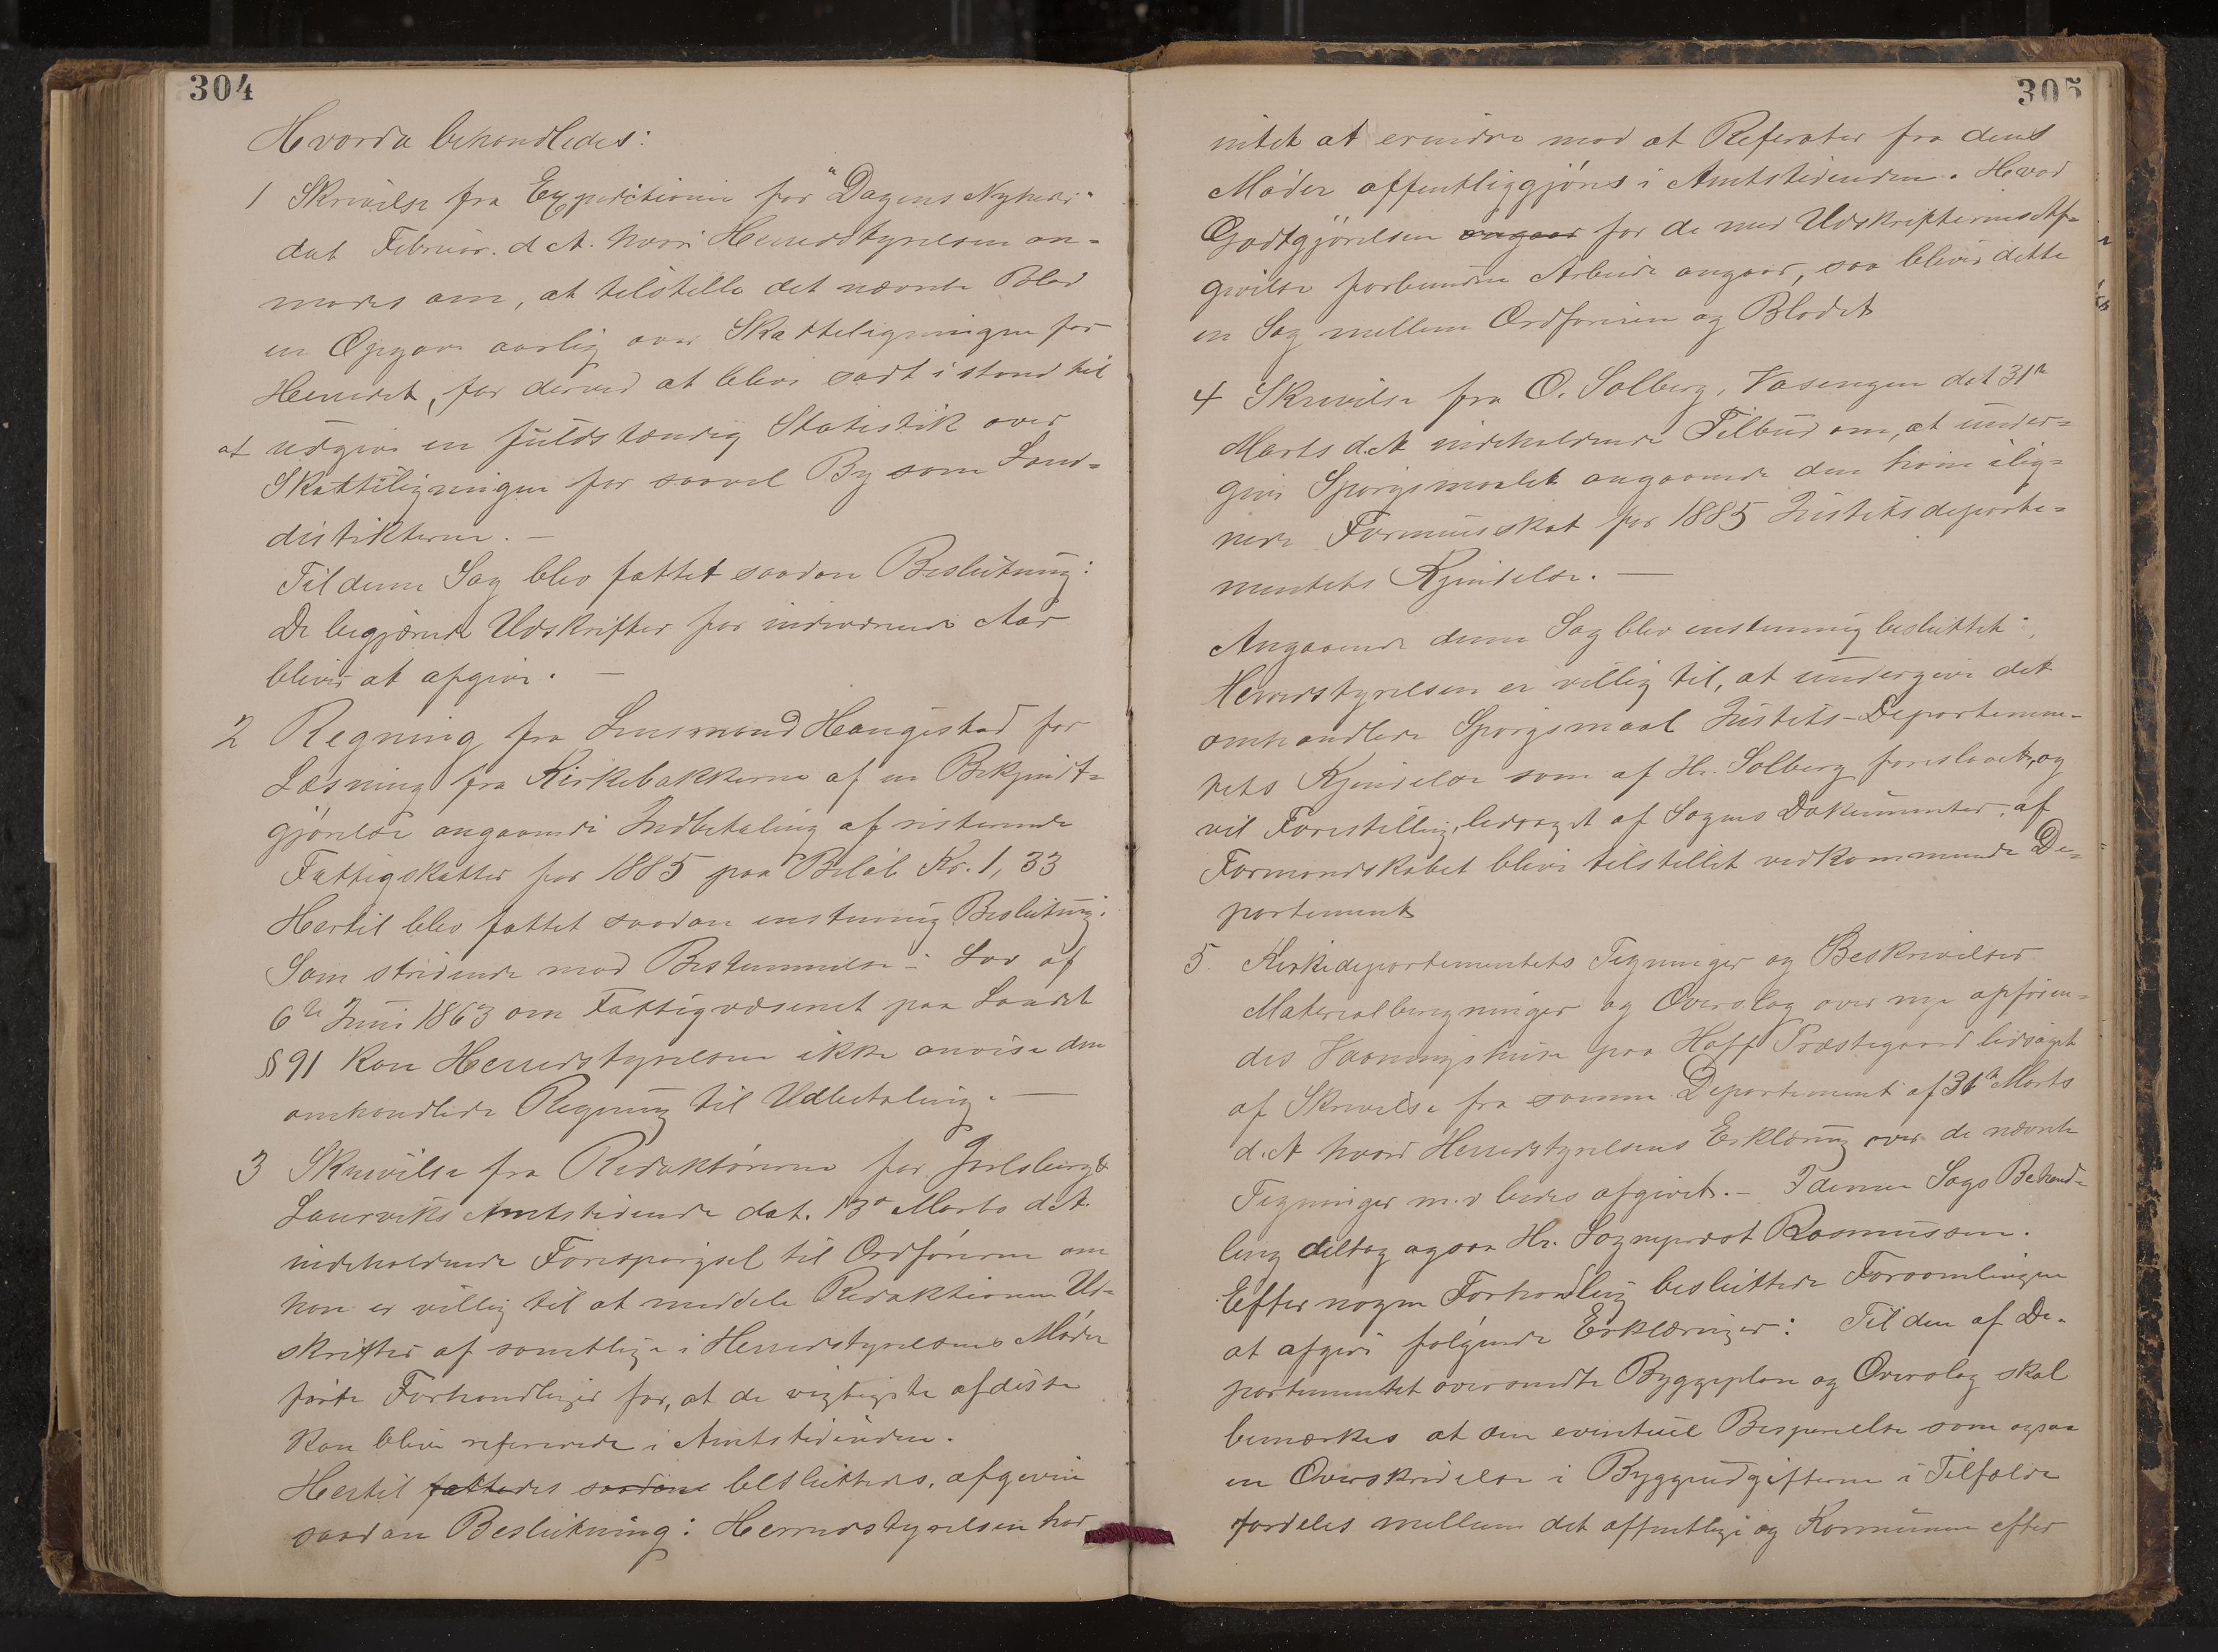 304
Hvorda behandledes:
1 Skrivelse fra Expeditionen for "Dagens Nyheder"
dat Februar. d. A. hvori Herredstyrelsen an-
modes om, at tilstille det nævnte Blad
en Opgave aarlig over Skatteligningen for
Herredet, for derved at blive sadt i stand til
at udgive en fuldstændig Statistik over
Skatteligningen for saavel By som Land-
distikterne. —
Til denne Sag blev fattet saadan Beslutning:
De begjærede Udskrifter for indeværende Aar
bliver at afgive. —
2 Regning fra Lensmand Haugestad for
Læsning fra Kirkebakkerne af en Bekjendt-
gjørelse angaaende Indbetaling af resterende
Fattigskatter for 1885 paa Beløb Kr. 1,33
Hertil blev fattet saadan enstemig Beslutning:
Som stridende mod Bestemmelse i Lov af
6te Juni 1863 om Fattigvæsenet paa Landet
§ 91 kan Herredstyrelsen ikke anvise den
omhandlede Regning til Udbetaling. —
3 Skrivelse fra Redaktørerne for Jarlsberg &
Laurviks Amtstidende dat. 13de Marts d.A.
indeholdende Forespørgsel til Ordføreren om
han er villig til at meddele Redaktionen Ud-
skrifter af samtlige i Herredstyrelsens Møder
førte Forhandlinger for, at de vigtigste af disse
kan blive refererede i Amtstidenden.
Hertil fattedes saadane besluttedes, afgiven
saadan Beslutning: Herredstyrelsen har
305
intet at erindre mod at Referater fra dens
Møder offentliggjøres i Amtstidenden. Hvad
Godtgjørelsen angaar for de med Udskrifternes Af-
givelse forbundne Arbeide angaar, saa bliver dette
en Sag mellem Ordføreren og Bladet
4 Skrivelse fra O. Solberg, Vasengen dat 31te
Marts d.A. indeholdende Tilbud om, at under-
give Spørgsmaalet angaaende den ham ilig-
nede Formuesskat for 1885 Justitsdeparte-
mentets Kjendelse. —
Angaaende denne Sag blev enstemmig besluttet:
Herredstyrelsen er villig til, at undergive det
omhandlede Spørgsmaal Justits-Departemen-
tets Kjendelse som af Hr. Solberg foreslaaet, og
vil Forestilling, ledsaget af Sagens Dokumenter, af
Formandskabet blive tilstillet vedkommende De-
partement
5. Kirkedepartementets Tegninger og Beskrivelser
Materialberegninger og Overslag over nye opføren-
des Vaaningshuse paa Hoff Præstegaard ledsaget
af Skrivelse fra samme Departement af 31te Marts
d.A hvori Herredstyrelsens Erklæring over de nævnte
Tegninger m.v bedes afgivet. — I denne Sags Behand-
ling deltog ogsaa Hr. Sogneprest Rasmussen.
Efter nogen Forhandling besluttede Forsamlingen
at afgive følgende Erklæringer: Til den af De-
partementet oversendte Byggeplan og Overslag skal
bemærkes at den eventuel Besparelse som ogsaa
en Overskridelse i Byggeudgifterne i Tilfælde
fordeles mellem det offentlige og Kommunen efter